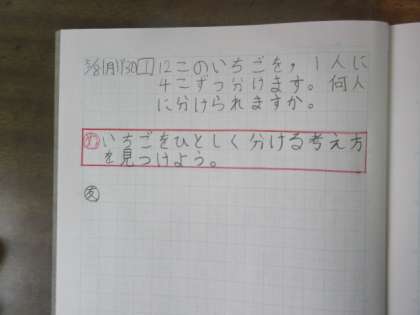 5/8(月)P30 1 12このいちごを，1人に
4こずつ分けます。何人
に分けられますか。
め いちごをひとしく分ける考え方
を見つけよう。
友